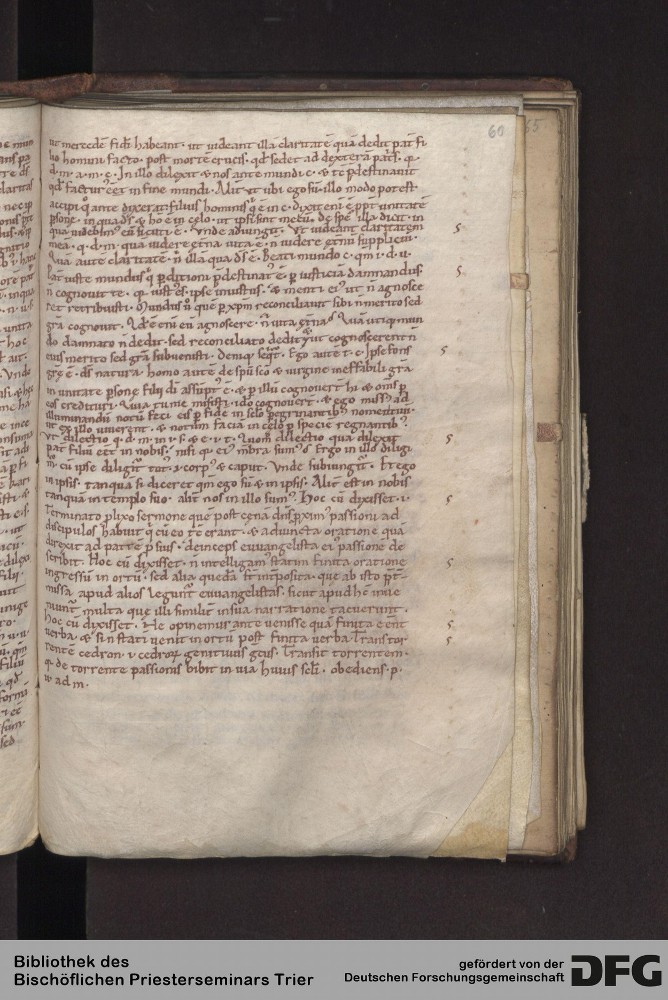 60 55
ut mercedē fidei habeant. ut uideant illā claritatē quā dedit pat̄ fi
lio homini facto. post mortē crucis. qd̄ sedet ad dexterā pat̄s. q.
d. m. a. m. c. In illo dilexit & nos ante mundi c. & tc̄ p̄destinauit
qd̄ facturꝰ eēt in fine mundi. Alit̄ ut ubi ego sū. illo modo potest
accipi qͦ ante dixerat. filius hominis qͥ ē in c. dixit eni ē ppt̄ unitatē
psone. in qua dꝰ & hō ē in celo. ut ipsi sint mecū. de spe illa dicit. in
qua uidebimꝰ eū sicuti ē. Vnde adiungit. Vt uideant claritatem
meā. q. d. m. qua uidere et̄na uita ē. n̄ uidere et̄nū suppliciū.
Quā autē claritatē n̄ illa qua dꝰ ē. beati mundo c. qm̄ i. d. u.
Pat̄ iuste mundus qͥ pditioni p̄destinatꝰ ē. p iusticiā damnandus
n̄ cognouit te. qͥ iustꝰ es. ipse iniustus. & menti eiꝰ ut n̄ agnosce
ret retribuisti. Mundus ū quē p xp̄m reconciliauit sibi n̄ merito sed
gr̄a cognouit.
do damnato n̄ dedit. sed reconciliato dedit. ut cognoscerent n̄
eius merito sed gr̄a subuenisti. Deniqꝫ seqt̄. Ego autē t. c. Ipse fons
gr̄ę ē. dꝰ natura. homo autē de spū sc̄o & uirgine ineffabili gr̄a
in unitate psone filii di assūptꝰ ē. & p illū cognouert̄ hi & om̄s p
eos credituri. Quia tu me misisti. ido cognouert̄. & ego missꝰ ad
illuminandū notū feci eis p fidē in sc̄lo pegrinantibꝰ nomen tuū.
ut ex illo uiuerent. & notum faciā in celo p specie regnantibꝰ.
Vt dilectio q. d. m. in i. s. & e. i. t. Quom̄ dilectio qua dilexit
pat̄ filiū eēt in nobis. nisi qͥ eiꝰ mēbra sumꝰ. Ergo in illo diligi
mꝰ cū ipse diligit̄ totꝰ. corpꝰ & caput. Vnde subiungit̄. Et ego
in ipsis. tanquā si diceret qm̄ ego sū & in ipsis. Alit̄ est in nobis
tanquā in templo suo. alit̄ nos in illo sumꝰ. Hoc cū dixisset. i.
Terminato plixo sermone quē post cęnā dn̄s pximꝰ passioni ad
discipulos habuit qͥ cū eo tc̄ erant. & adiuncta oratione quā
direxit ad patrē p suis. deinceps euuangelista eiꝰ passionē de
scribit. Hoc cū dixisset. n̄ intelligam statim finita oratione
ingressū in ortū. sed alia quedā st̄ int̄posita. que ab isto p̄t
missa apud alios legunt̄ euuangelistas. sicut apud hē inue
niunt̄ multa que illi similit̄ in sua narratione tacuerunt.
Hoc cū dixisset. Ne opinemur ante uenisse quā finita eēnt
uerba. & si n̄ statī uenit in ortū post finita uerba. Trans tor
rentē cedron. cedroꝝ genitiuus gc̄us. Transit torrentem.
qͥ de torrente passionis bibit in uia huius sclī. obediens. p.
u. ad m.
Bibliothek des
Bischöflichen Priesterseminars Trier
gefördert von der
Deutschen Forschungsgemeinschaft
DFG